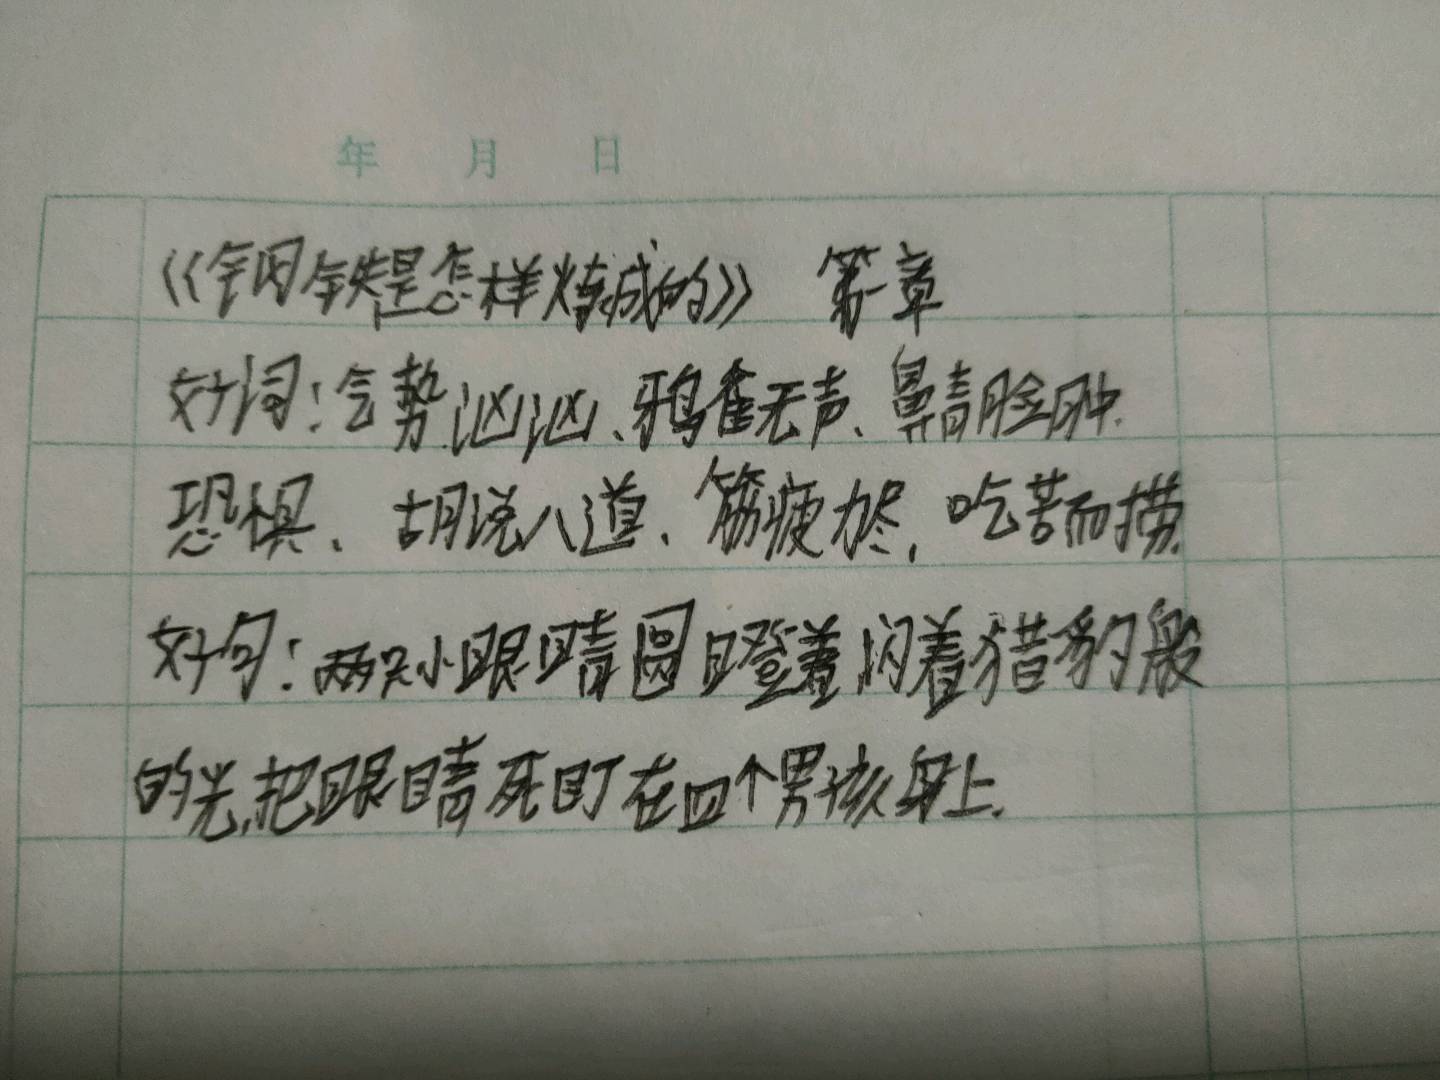 年 月 日
《钢铁是怎样炼成的》 第一章
好词:气势汹汹、鸦雀无声、鼻青脸肿.
恐惧、胡说八道、筋疲力尽,吃苦而捞.
好句:两只小眼睛圆瞪着,闪着猎豹般
的光,把眼睛死盯在四个男孩身上.